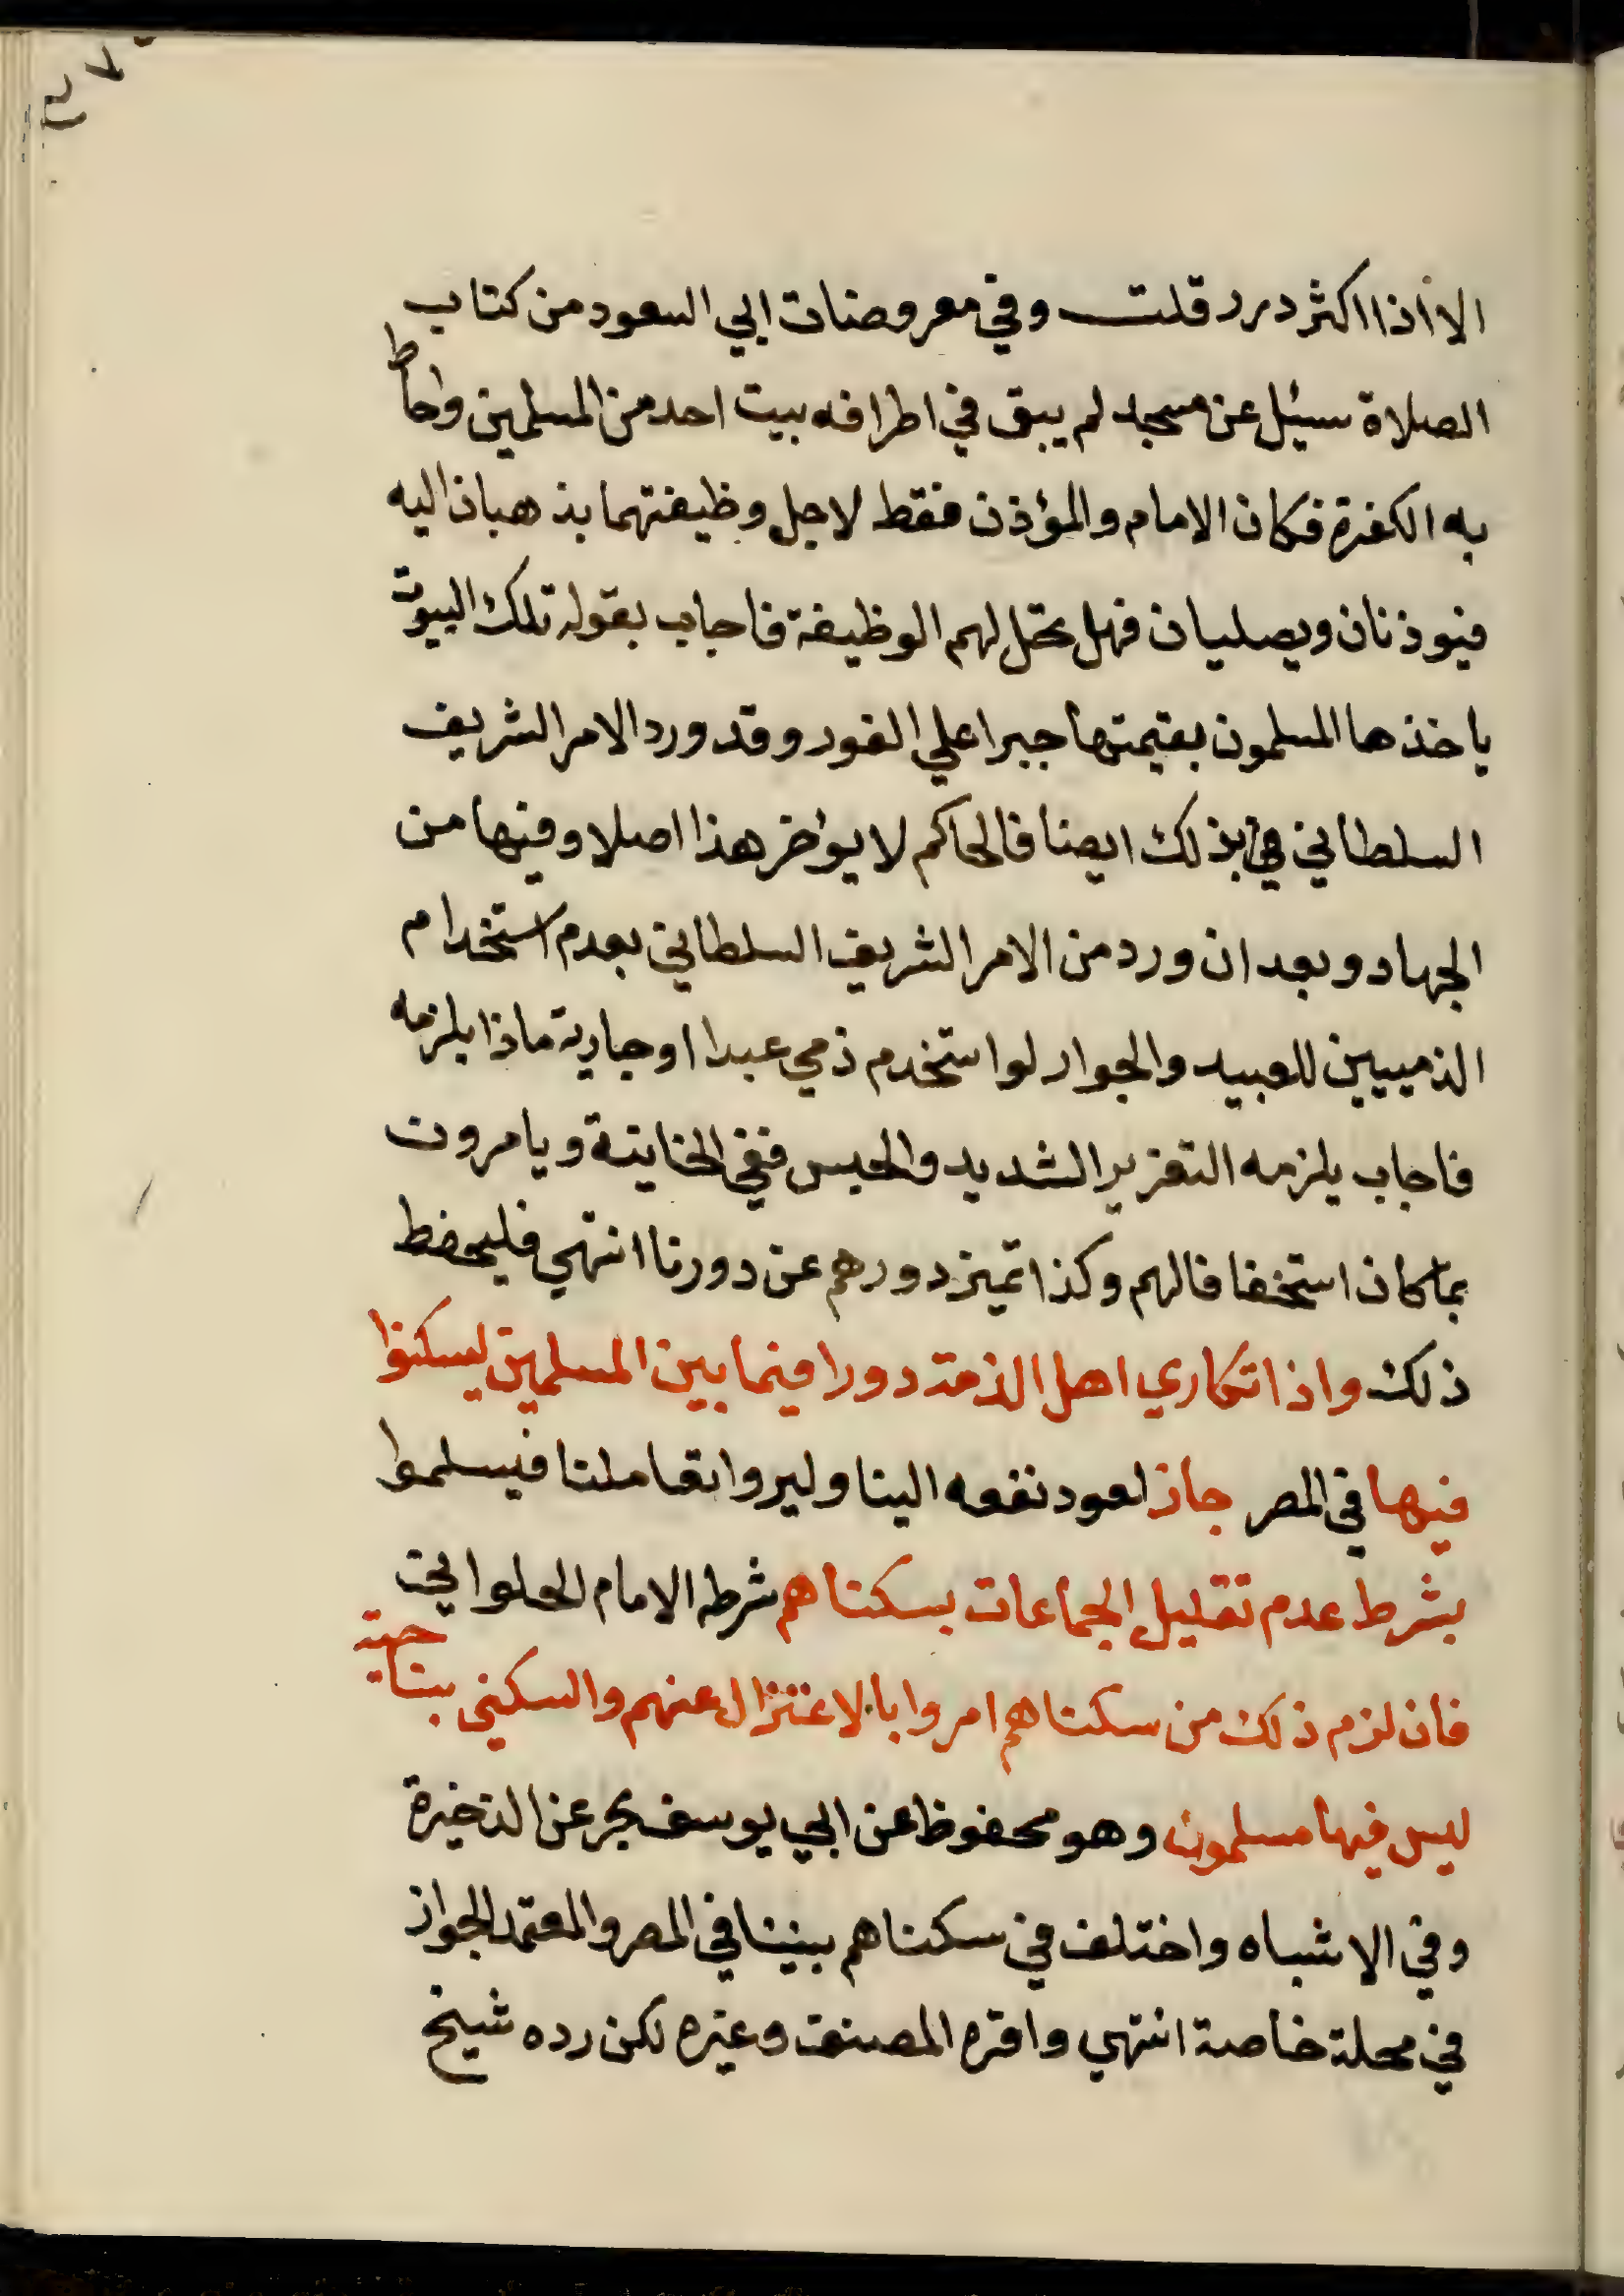 الا اذا اكثر درر قلت وفي معروضات ابي السعود من كتاب
الصلاة سئيل عن مسجد لم يبق في اطرافه بيت احد من المسلمين واحاط
به الكفرة فكان الامام والمؤذن فقط لاجل وظيفتهما يذهبان اليه
فيوذنان ويصليان فهل تحل لهم الوظيفة فاجاب بقوله تلك البيوت
ياخذها المسلمون بقيمتها جبرا علي الفور وقد ورد الامر الشريف
السلطاني في بذلك ايضا فالحاكم لا يؤخر هذا اصلا وفيها من
الجهاد وبعد ان ورد من الامر الشريف السلطاني بعدم استخدام
الذميين للعبيد والجوار لو استخدم ذمي عبدا او جارية ماذا يلزمه
فاجاب يلزمه التعزير الشديد والحبس ففي الخانية ويامرون
بما كان استخفافا لهم وكذا تميز دورهم عن دورنا انتهي فليحفظ
ذلك واذا تكاري اهل الذمة دورا فيما بين المسلمين ليسكنوا
فيها في المصر جاز لعود نفعه الينا وليروا تعاملنا فيسلموا
بشرط عدم تقليل الجماعات بسكناهم شرطه الامام الحلواني
فان لزم ذلك من سكناهم امروا بالاعتزال عنهم والسكني بناحية
ليس فيها مسلمون وهو محفوظ عن ابي يوسف بحر عن الذخيرة
وفي الاشباه واختلف في سكناهم بيننا في المصر والمعتمد الجواز
في محلة خاصة انتهي واقره المصنف وغيره لكن رده شيخ